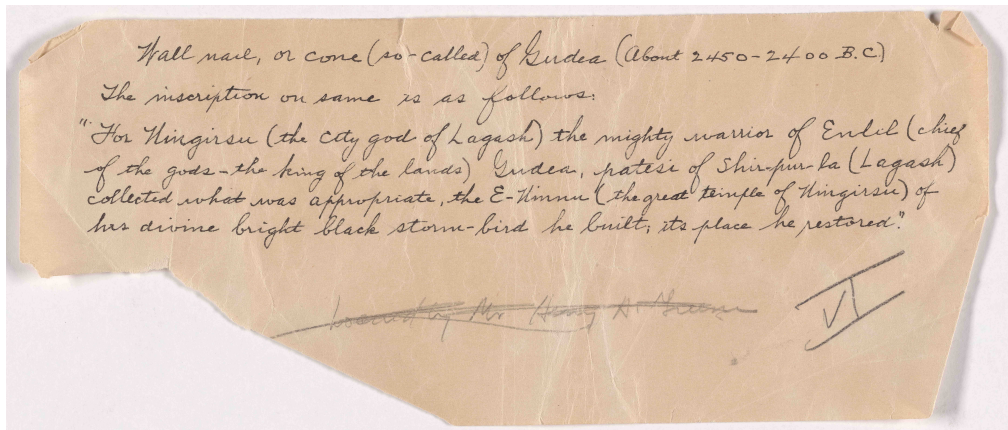 Wall nail, or cone (so-called) of Gudea (About 2450-2400 B.C)
The inscription on same is as follows:
"For Ningirsu (the city god of Lagash) the mighty warrior of Enlil (chief
of the gods - the king of the lands) Gudea, patesi of Shir-pur-la (Lagash)
collected what was appropriate, the E-Ninnu (the great temple of Ningirsu) of
his divine bright black storm-bird he built; its place he restored."
by Mr Henry
VI